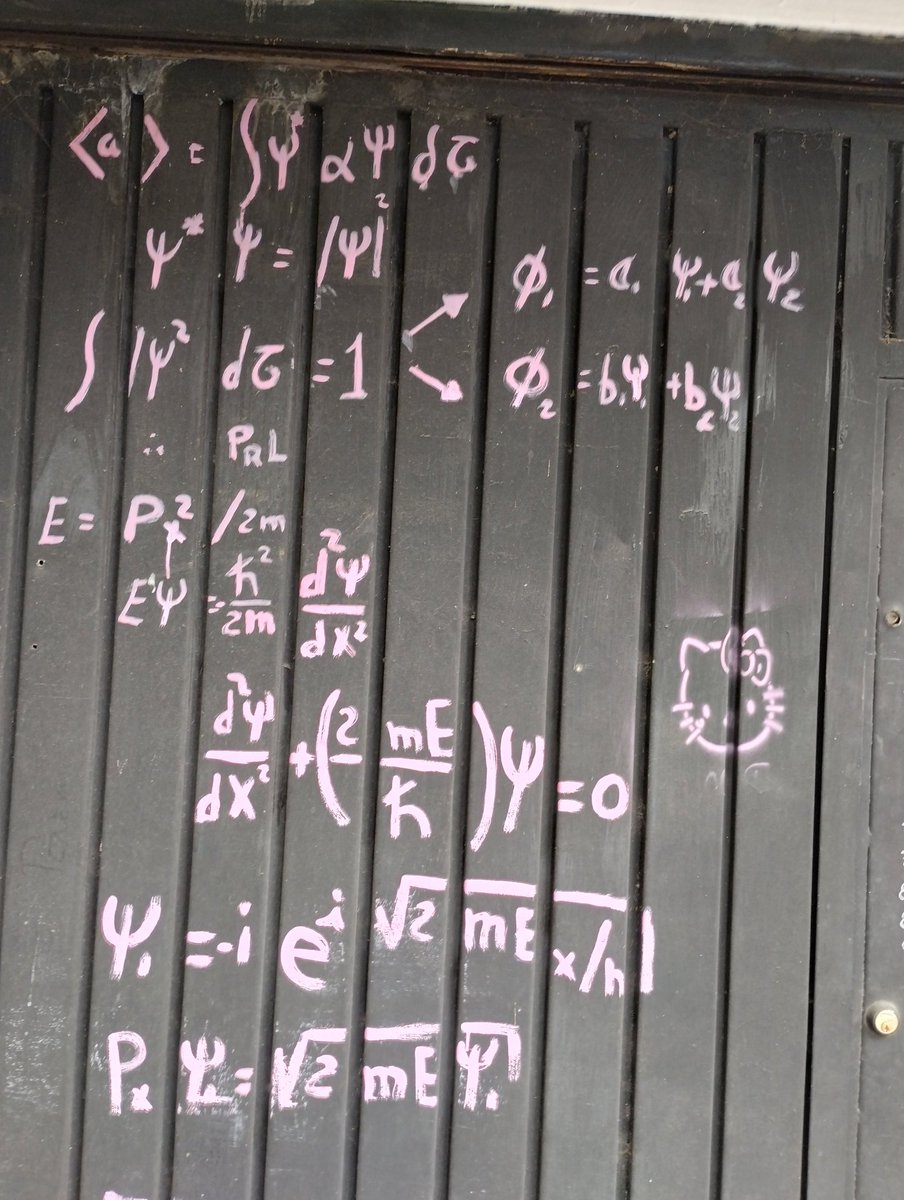 <a> = ∫Ψ* αΨ dτ
Ψ* Ψ = |Ψ|²
∫ |Ψ² dτ = 1
Φ₁ = a₁ Ψ₁+a₂ Ψ₂
Φ₂ = b₁Ψ₁ +b₂Ψ₂
∴ PRL
E = Px² /2m
EΨ = ħ²/2m d²Ψ/dx²
d²Ψ/dx² + (2 mE/ħ)Ψ = 0
Ψ₁ = -i e^i √2 mE x/h
Px Ψ₁ = √2 mE Ψ₁